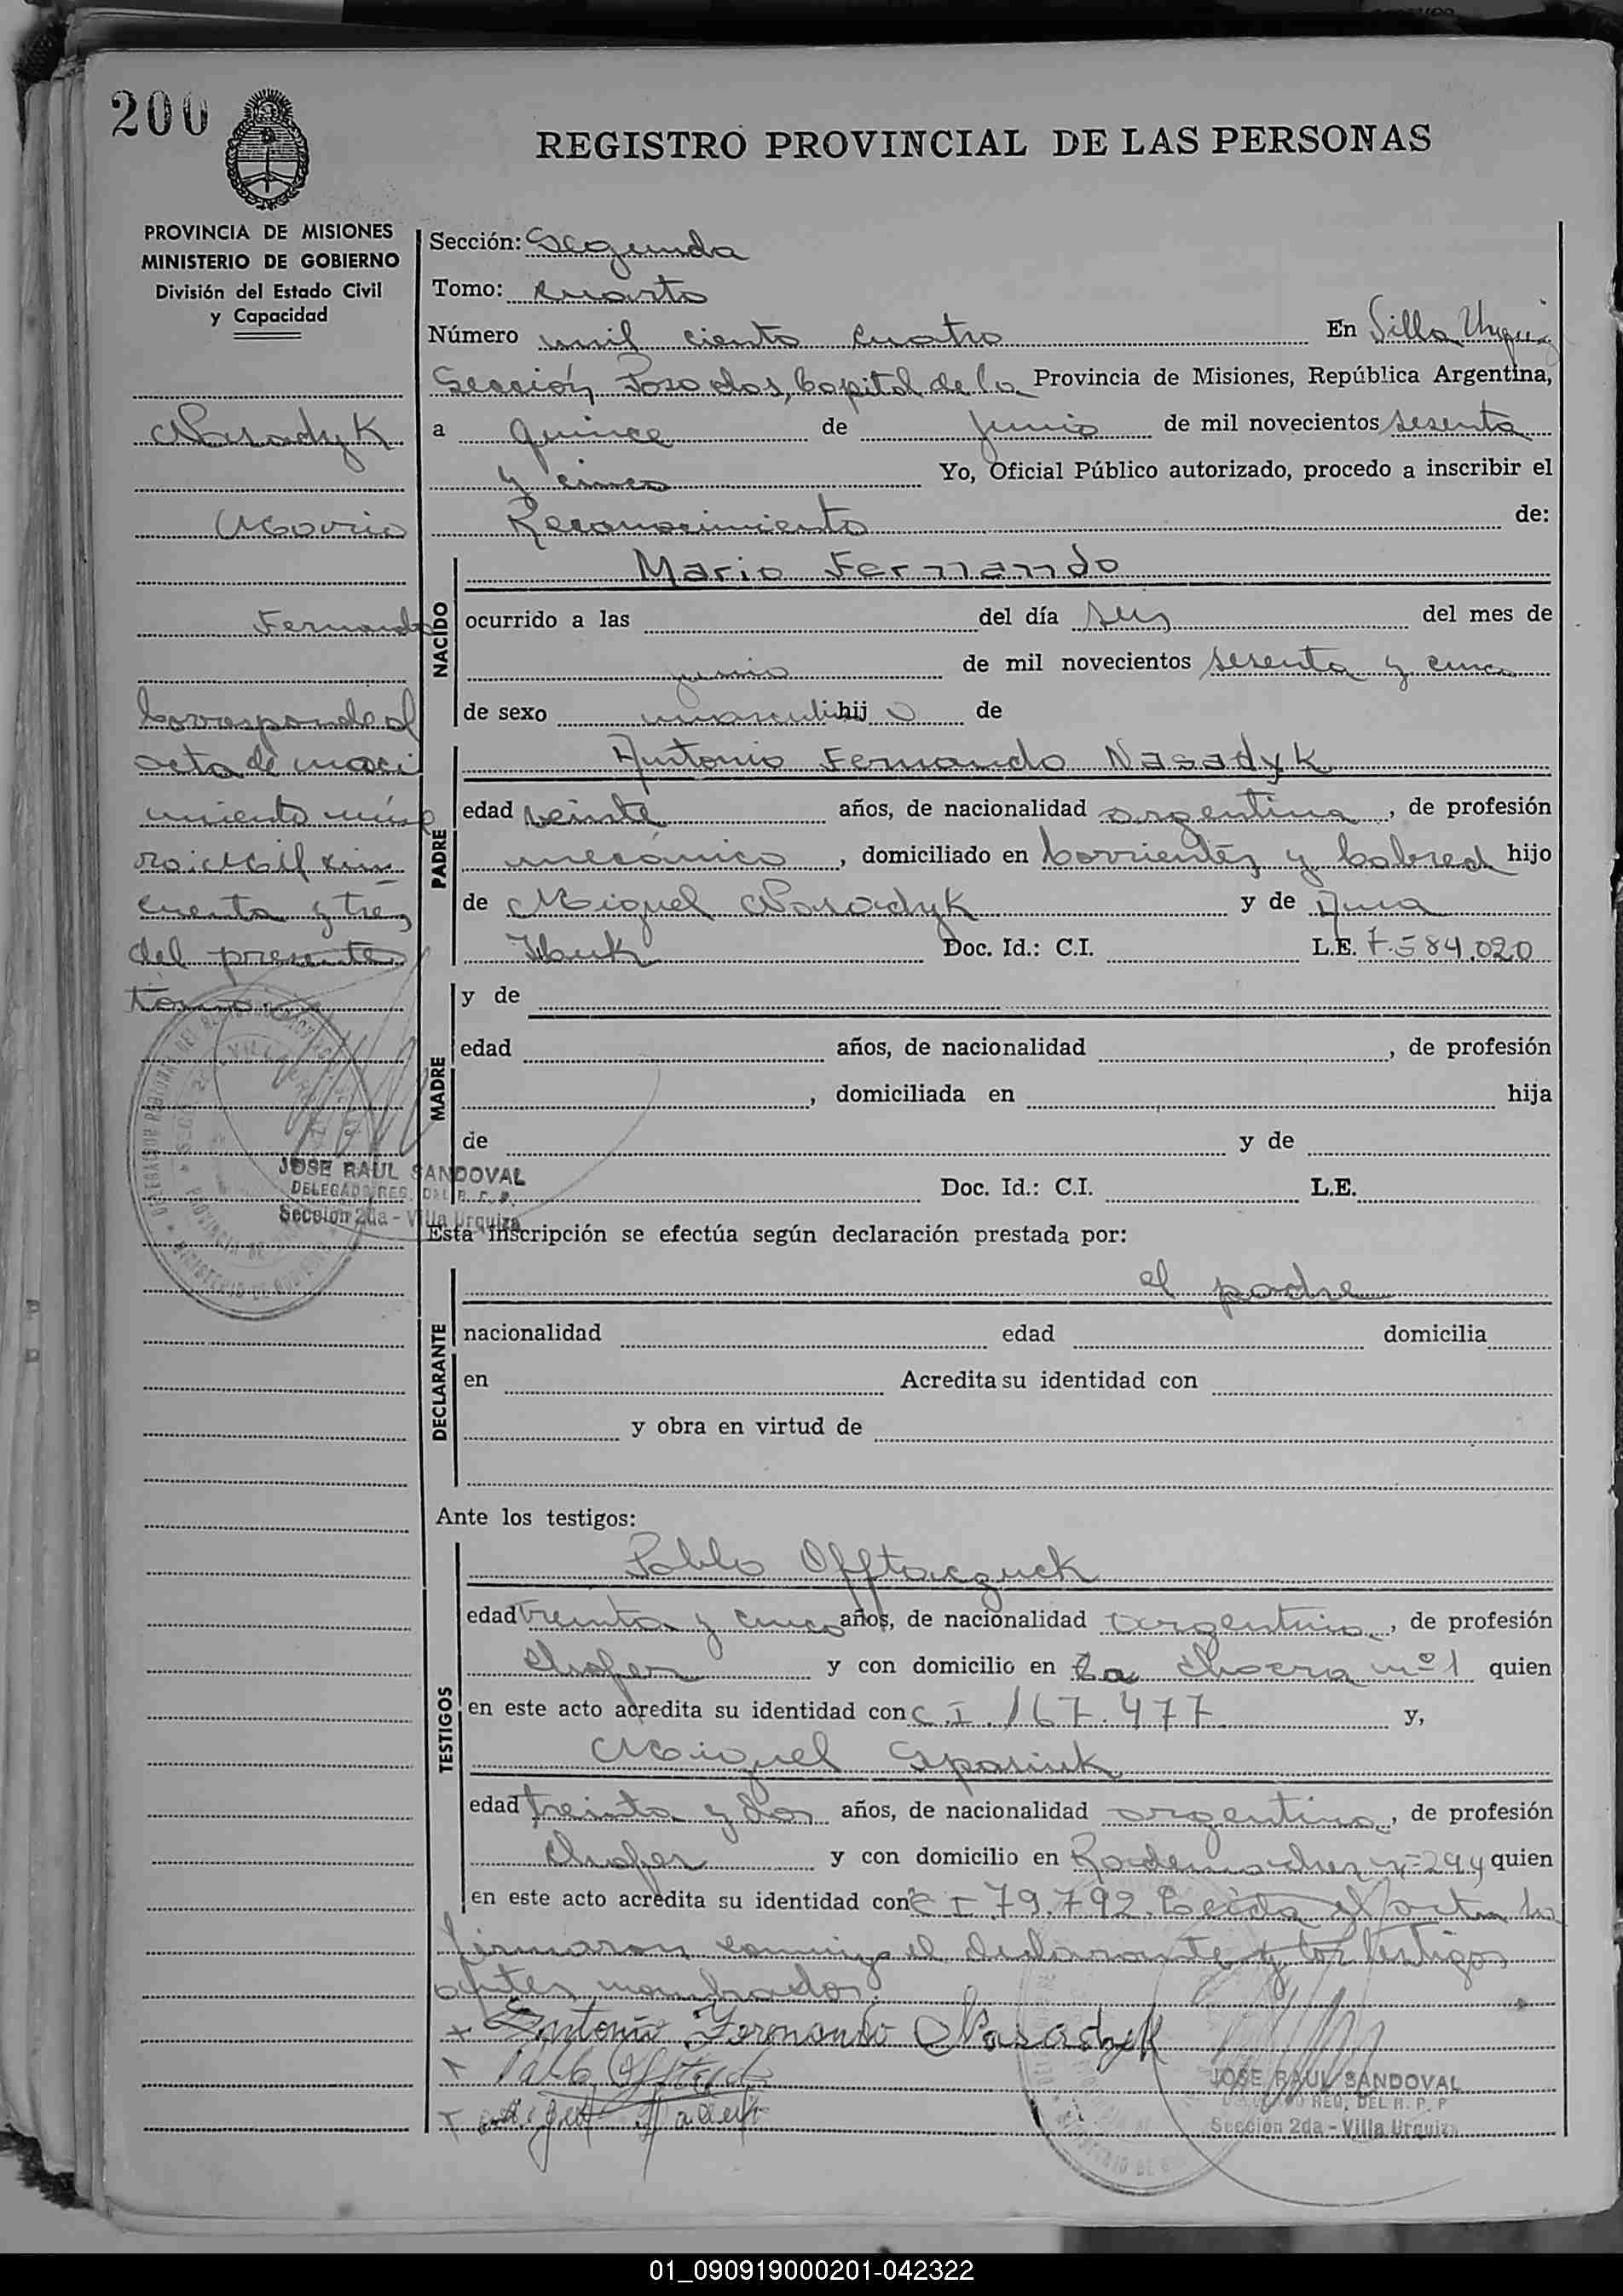 200
REGISTRO PROVINCIAL DE LAS PERSONAS
PROVINCIA DE MISIONES
MINISTERIO DE GOBIERNO
División del Estado Civil
y Capacidad
Nasadyk
Mario
Fernando
Corresponde al
acta de naci
miento núme
ro: Mil cin
cuenta y tres
del presente
tomo.
JOSE RAUL SANDOVAL
DELEGADO REG. DEL R. P. P.
Sección 2da - Villa Urquiza
Sección: Segunda
Tomo: cuarto
Número mil ciento cuatro En Villa Urquiza
Sección Posadas, Capital de la Provincia de Misiones, República Argentina,
a quince de junio de mil novecientos sesenta
y cinco Yo, Oficial Público autorizado, procedo a inscribir el
Reconocimiento de:
NACIDO
Mario Fernando
ocurrido a las del día seis del mes de
junio de mil novecientos sesenta y cinco
de sexo masculi hijo de
PADRE
Antonio Fernando Nasadyk
edad veinte años, de nacionalidad argentina, de profesión
mecánico, domiciliado en Corrientes y Cabred hijo
de Miguel Nasadyk y de Ana
Doc. Id.: C.I. L.E. 7.584.020
MADRE
y de
edad años, de nacionalidad , de profesión
, domiciliada en hija
de y de
Doc. Id.: C.I. L.E.
Esta inscripción se efectúa según declaración prestada por:
DECLARANTE
el padre
nacionalidad edad domicilia
en Acredita su identidad con
y obra en virtud de
Ante los testigos:
TESTIGOS
Pablo Offtaczuck
edad treinta y cinco años, de nacionalidad argentina, de profesión
chofer y con domicilio en La Chacra nº 1 quien
en este acto acredita su identidad con C.I. 167.477 y,
Miguel Spasiuk
edad treinta y dos años, de nacionalidad argentina, de profesión
chofer y con domicilio en quien
en este acto acredita su identidad con C I 79.792. Leida el acta la
firmaron conmigo el declarante y los testigos
antes nombrados.
Antonio Fernando Nasadyk
JOSE RAUL SANDOVAL
DELEGADO REG. DEL R. P. P
Sección 2da - Villa Urquiza
01_090919000201-042322